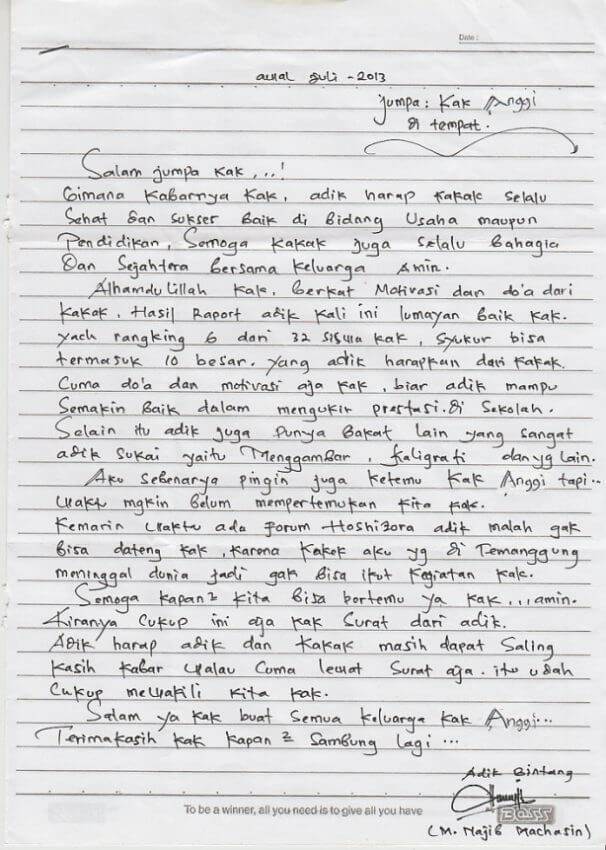 Date :
awal Juli - 2013
Jumpa : Kak Anggi
di tempat.
Salam jumpa kak, ...!
Gimana kabarnya kak, adik harap kakak selalu
Sehat dan sukses Baik di Bidang Usaha maupun
Pendidikan, Semoga kakak juga selalu Bahagia
Dan Sejahtera Bersama keluarga Amin.
Alhamdulillah kak, Berkat Motivasi dan do'a dari
kakak, Hasil Raport adik kali ini lumayan Baik kak.
yach rangking 6 dari 32 siswa kak, syukur bisa
termasuk 10 besar. yang adik harapkan dari kakak.
Cuma do'a dan motivasi aja kak, biar adik mampu
Semakin Baik dalam mengukir prestasi di sekolah.
Selain itu adik juga Punya Bakat lain yang sangat
adik sukai yaitu Menggambar, kaligrafi dan yg lain.
Aku sebenarya pingin juga ketemu kak Anggi tapi..
waktu mgkin Belum mempertemukan kita kak.
Kemarin waktu ada forum Hoshizora adik malah gak
Bisa dateng kak, karena kakek aku yg di Temanggung
meninggal dunia jadi gak Bisa ikut kegiatan kak.
Semoga kapan² kita Bisa bertemu ya kak,...amin.
Kiranya Cukup ini aja kak Surat dari adik.
Adik harap adik dan kakak masih dapat Saling
kasih kabar walau Cuma lewat Surat aja. itu udah
Cukup mewakili kita kak.
Salam ya kak buat Semua keluarga kak Anggi...
Terimakasih kak kapan² Sambung lagi ...
Adik Bintang
(M. Najib Machasin)
To be a winner, all you need is to give all you have
BOSS